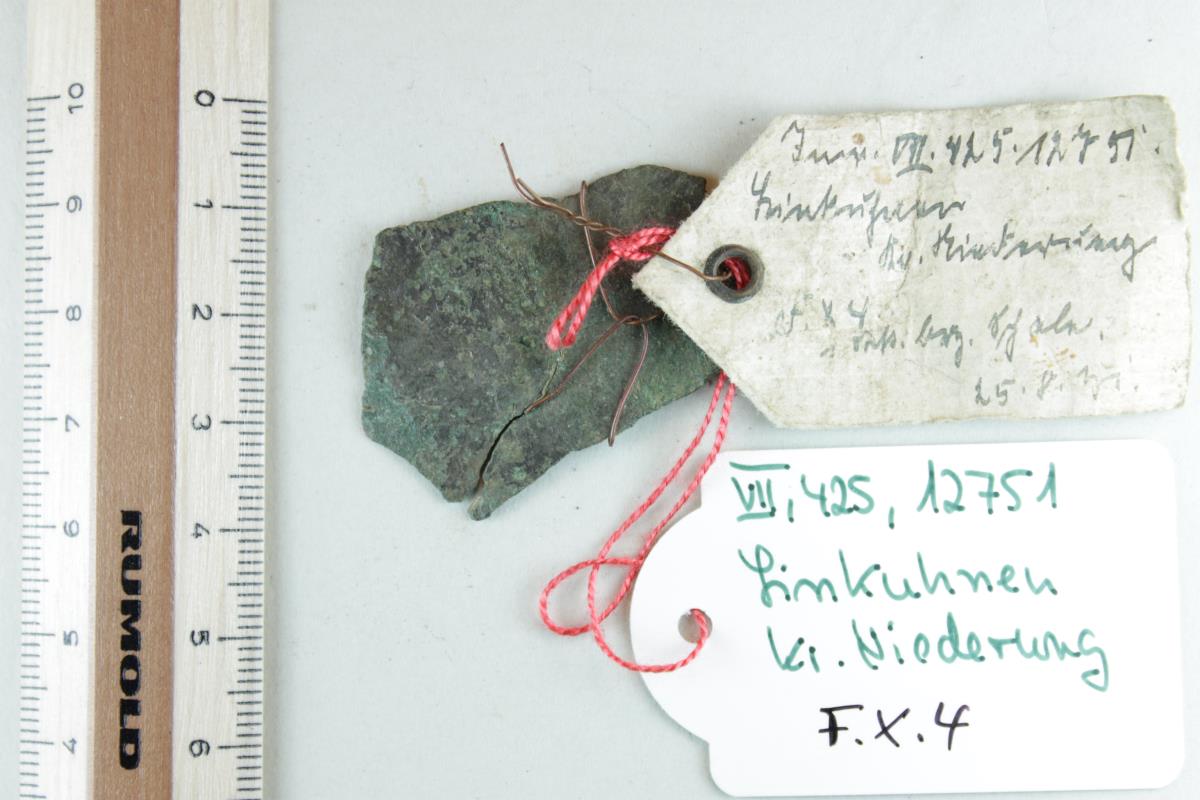 10
9
8
7
6
5
4
RUMOLD
0
1
2
3
4
5
6
Inv. VII. 425. 12751.
Linkuhnen
Kr. Niederung
F. X 4
Schale.
25.8.
VII, 425, 12751
Linkuhnen
Kr. Niederung
F.X.4